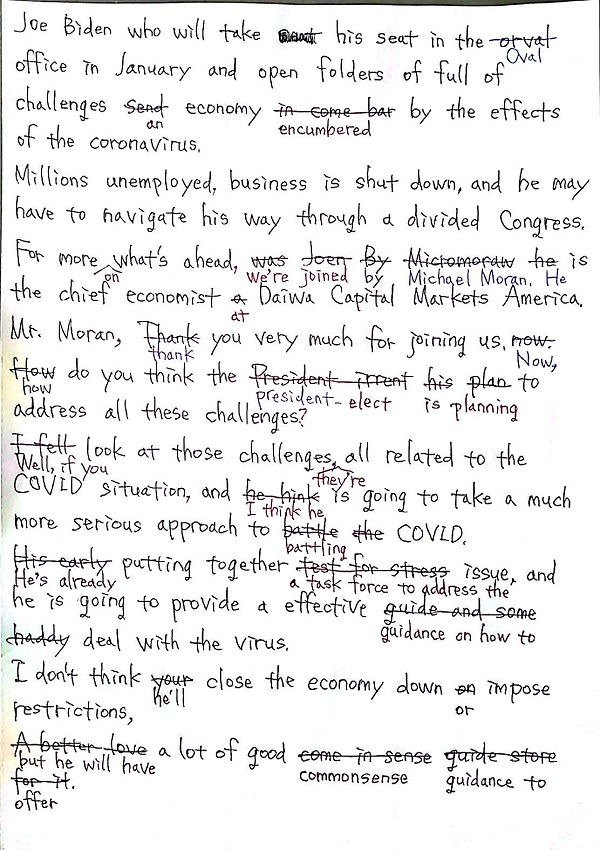 Joe Biden who will take his seat in the orval
Oval
office in January and open folders of full of
challenges Send economy in come bar by the effects
an encumbered
of the coronavirus.
Millions unemployed, business is shut down, and he may
have to navigate his way through a divided Congress.
For more what's ahead, was Joen By Micromoraw he is
on we're joined by Michael Moran. He
the chief economist a Daiwa Capital Markets America.
at
Mr. Moran, Thank you very much for joining us, now.
thank Now,
How do you think the President irrent his plan to
how president-elect is planning
address all these challenges?
I fell look at those challenges, all related to the
Well, if you they're
COVID situation, and he hink is going to take a much
I think he
more serious approach to battle the COVID.
battling
His early putting together test for stress issue, and
He's already a task force to address the
he is going to provide a effective guide and some
guidance on how to
haddy deal with the virus.
I don't think your close the economy down on impose
he'll or
restrictions,
A better love a lot of good come in sense guide store
but he will have commonsense guidance to
for it.
offer